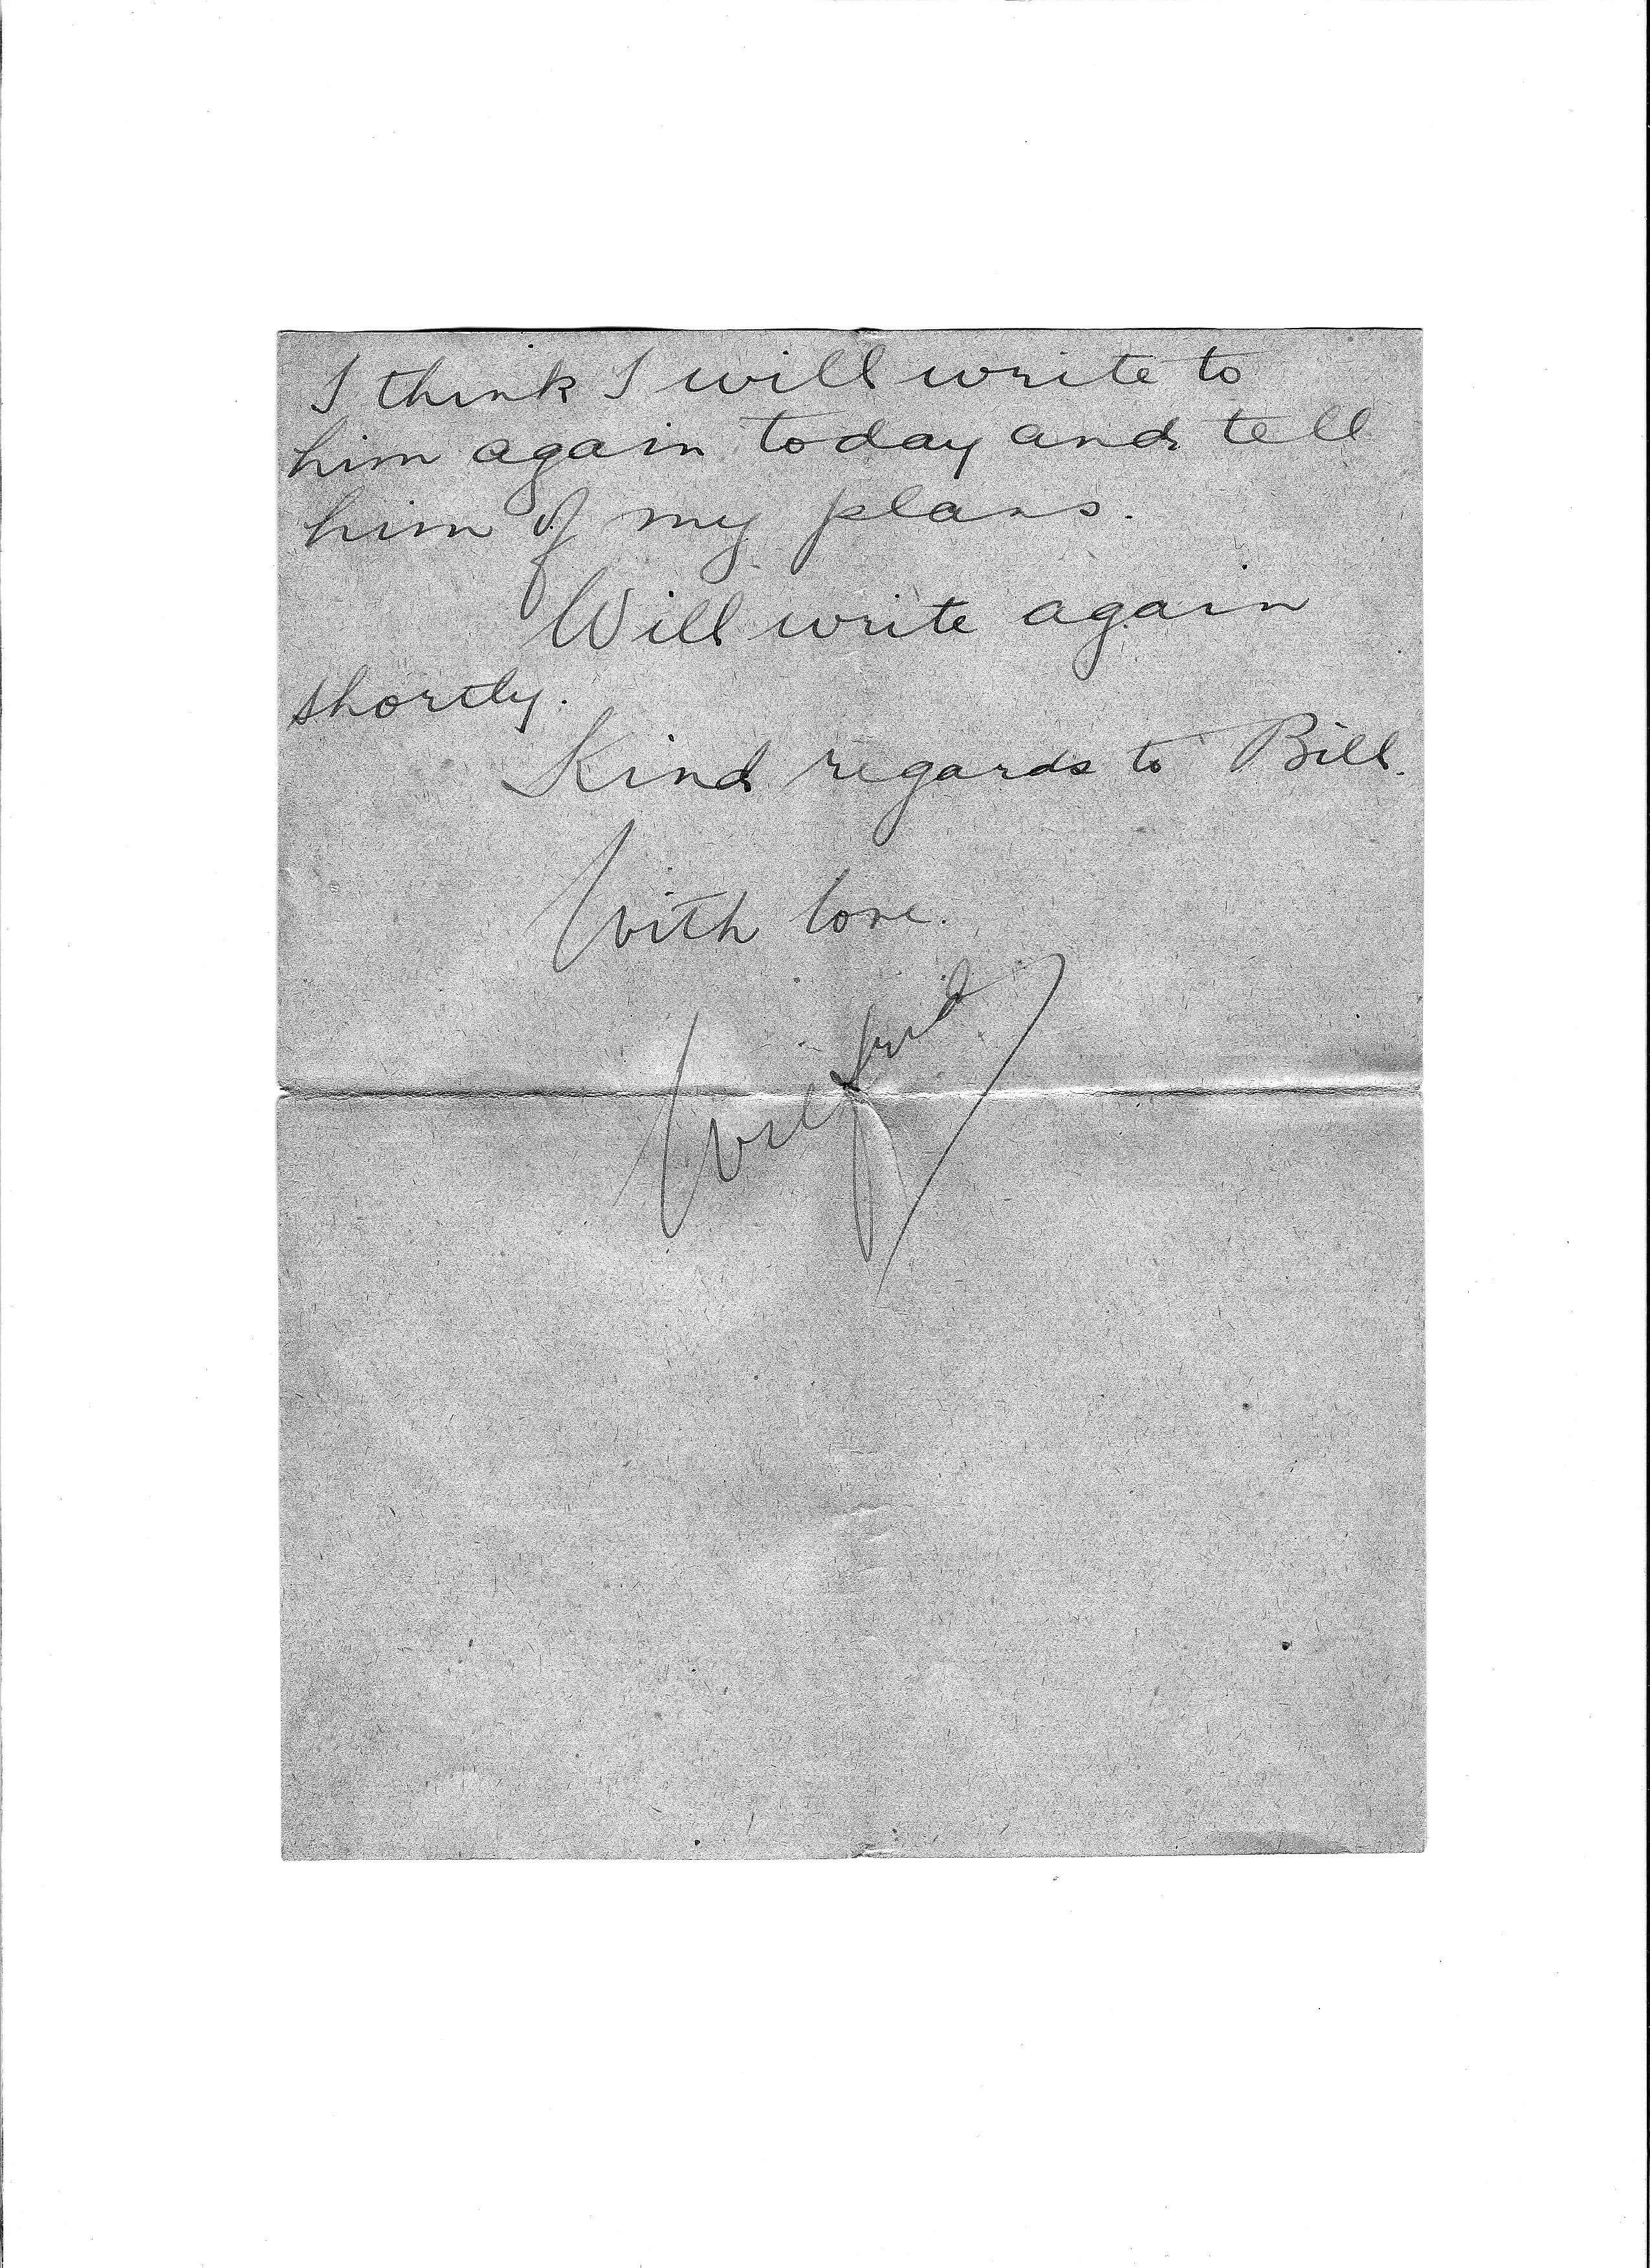 I think I will write to
him again today and tell
him of my plans.
Will write again
shortly.
Kind regards to Bill.
With love.
Wilfrid